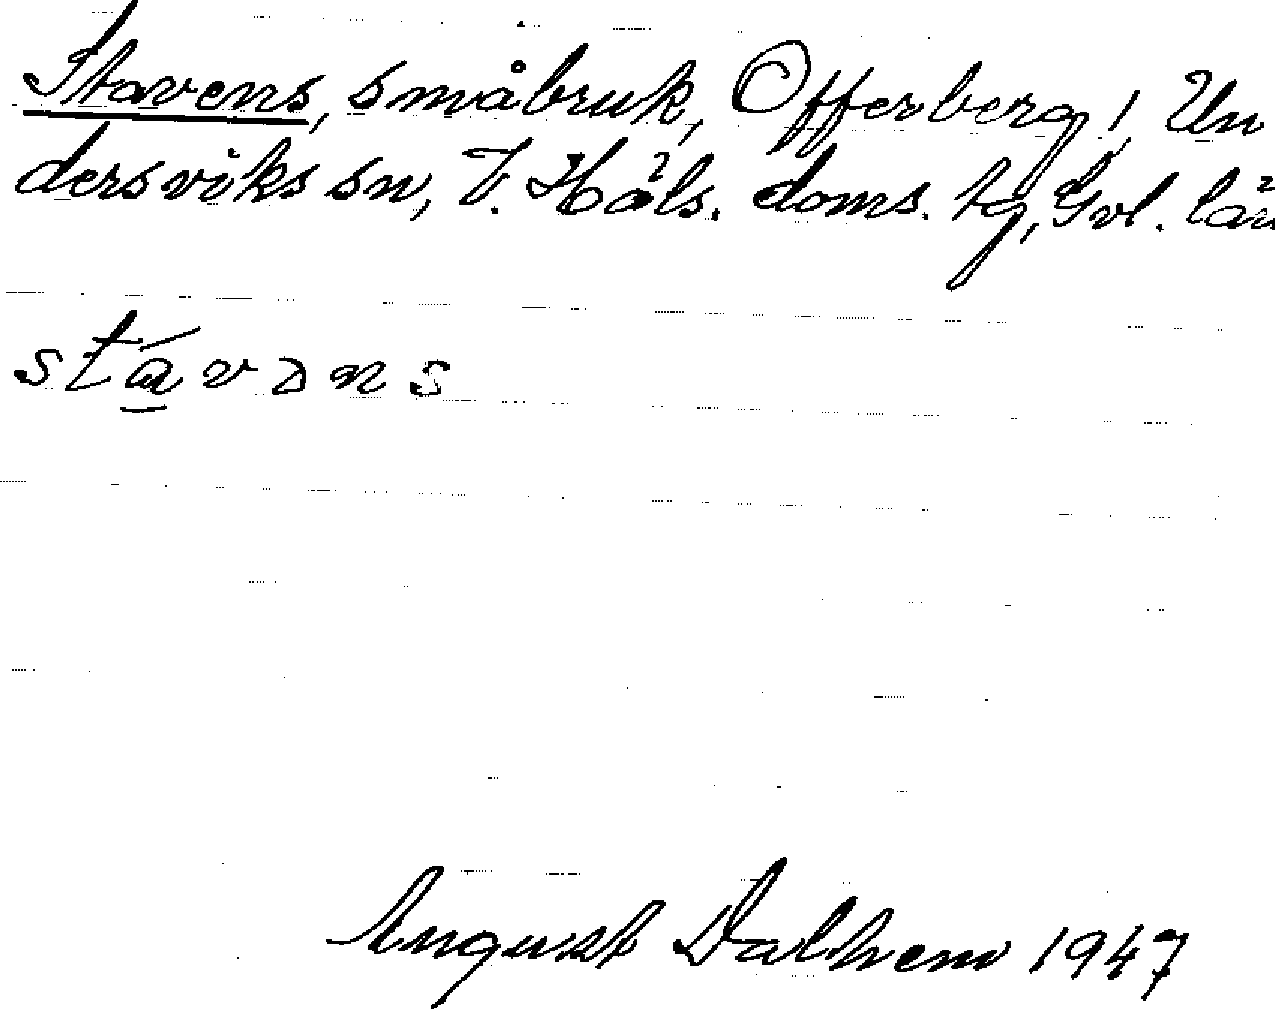 Stavens, småbruk, Offerberg 1, Un
dersviks sn, V. Häls. doms. tg, Gvl. län
stá̱vəns
August Dalhem 1947